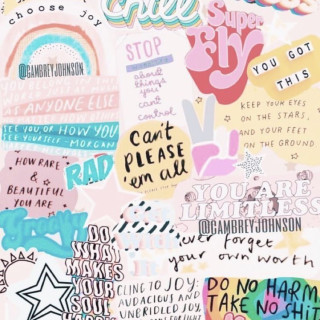 choose joy
chill
@CAMBREYJOHNSON
STOP
about
things you
can't
control
Super
Fly
YOU GOT
THIS
KEEP YOUR EYES
ON THE STARS,
AND YOUR FEET
ON THE GROUND
AS ANYONE ELSE.
SEE YOU OR HOW YOU
SEE YOURSELF - MORGAN
Can't
PLEASE
'em all
HOW RARE
&
BEAUTIFUL
YOU ARE
RAD
YOU ARE
LIMITLESS
@CAMBREYJOHNSON
Groovy
never forget
your own worth
DO
WHAT
MAKES
YOUR
SOUL
HAPPY
CLING TO JOY;
AUDACIOUS AND
UNBRIDLED JOY,
DO NO HARM
TAKE NO SHIT